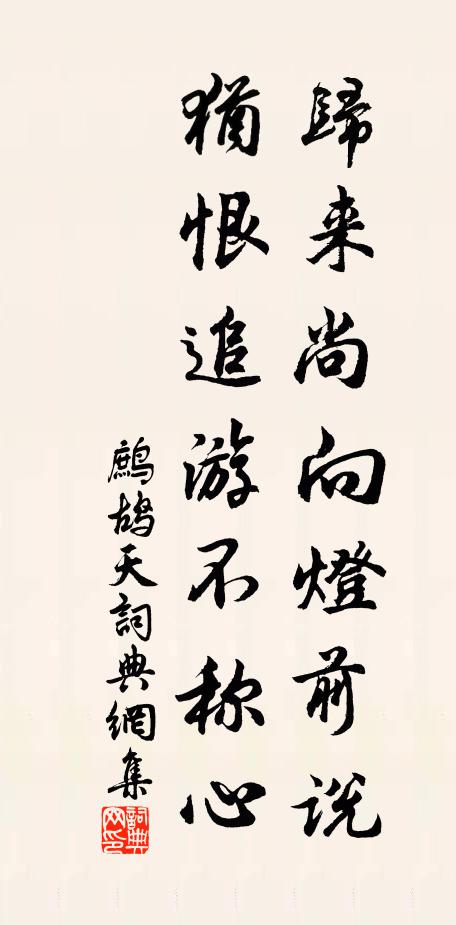 歸来尚向燈前說
猶恨追游不称心
鷓鴣天詞典網集
詞典网印